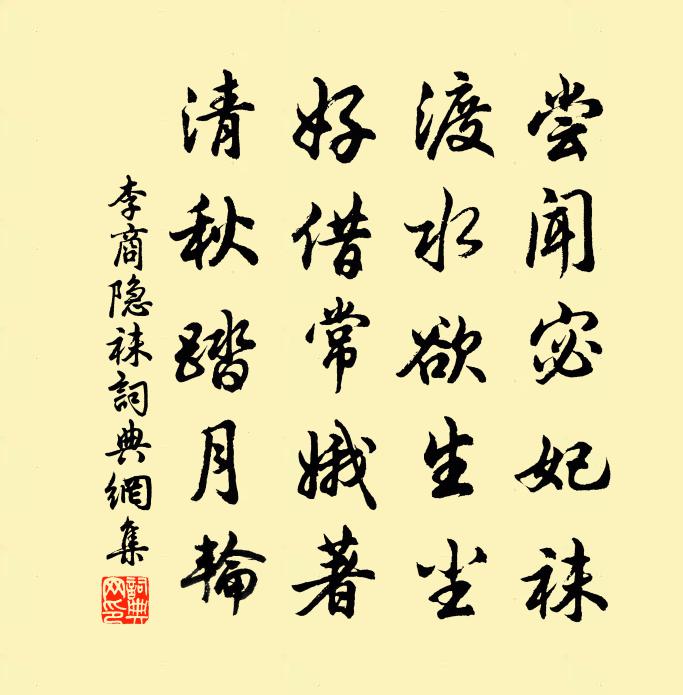 尝闻宓妃袜
渡水欲生尘
好借常娥著
清秋踏月輪
李商隐袜詞典網集
詞典
网印